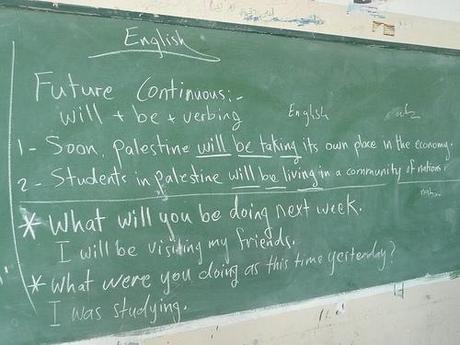 English
Future Continuous:-
will + be + verbing
English
1- Soon, palestine will be taking its own place in the economy.
2- Students in palestine will be living in a community of nations.
* What will you be doing next week.
I will be visiting my friends.
* What were you doing as this time yesterday?
I was studying.